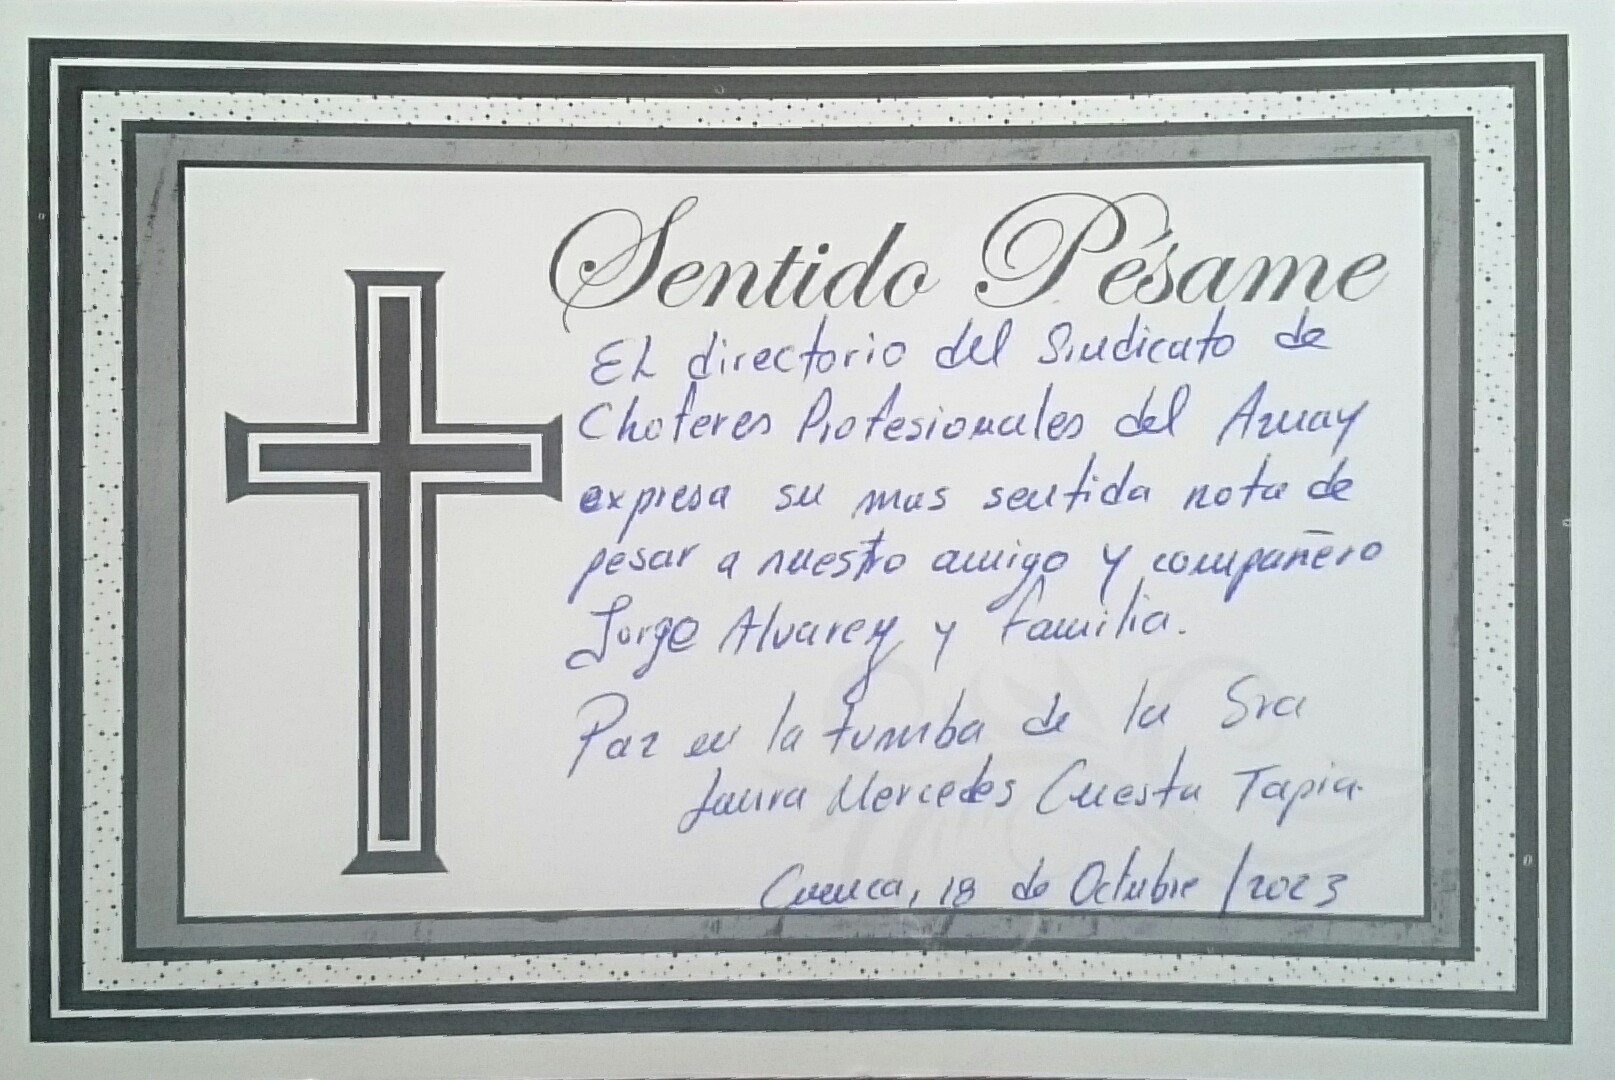 Sentido Pésame
El directorio del Sindicato de
Choferes Profesionales del Azuay
expresa su mas sentida nota de
pesar a nuestro amigo y compañero
Jorge Alvarez y familia.
Paz en la tumba de la Sra
Laura Mercedes Cuesta Tapia.
Cuenca, 18 de Octubre /2023